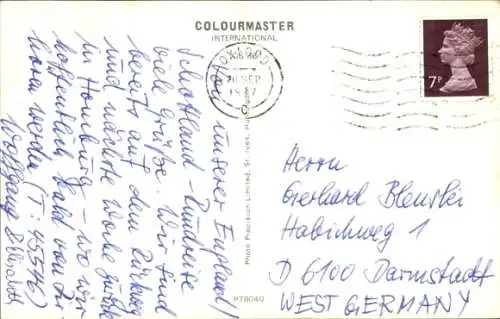 COLOURMASTER
INTERNATIONAL
OXFORD
20 SEP
7P
Von unserer England/
Schottland-Rundreise
viele Grüße. Wir sind
bereits auf dem Rückweg
und nächste Woche zurück
in Homburg - wo wir
hoffentlich bald von Dir
hören werden (T: 45546)
Wolfgang
Photo Precision Limited, St. Ives, Huntingdon
PT8040
Herrn
Gerhard Blenski
Habichweg 1
D 6100 Darmstadt
WEST GERMANY